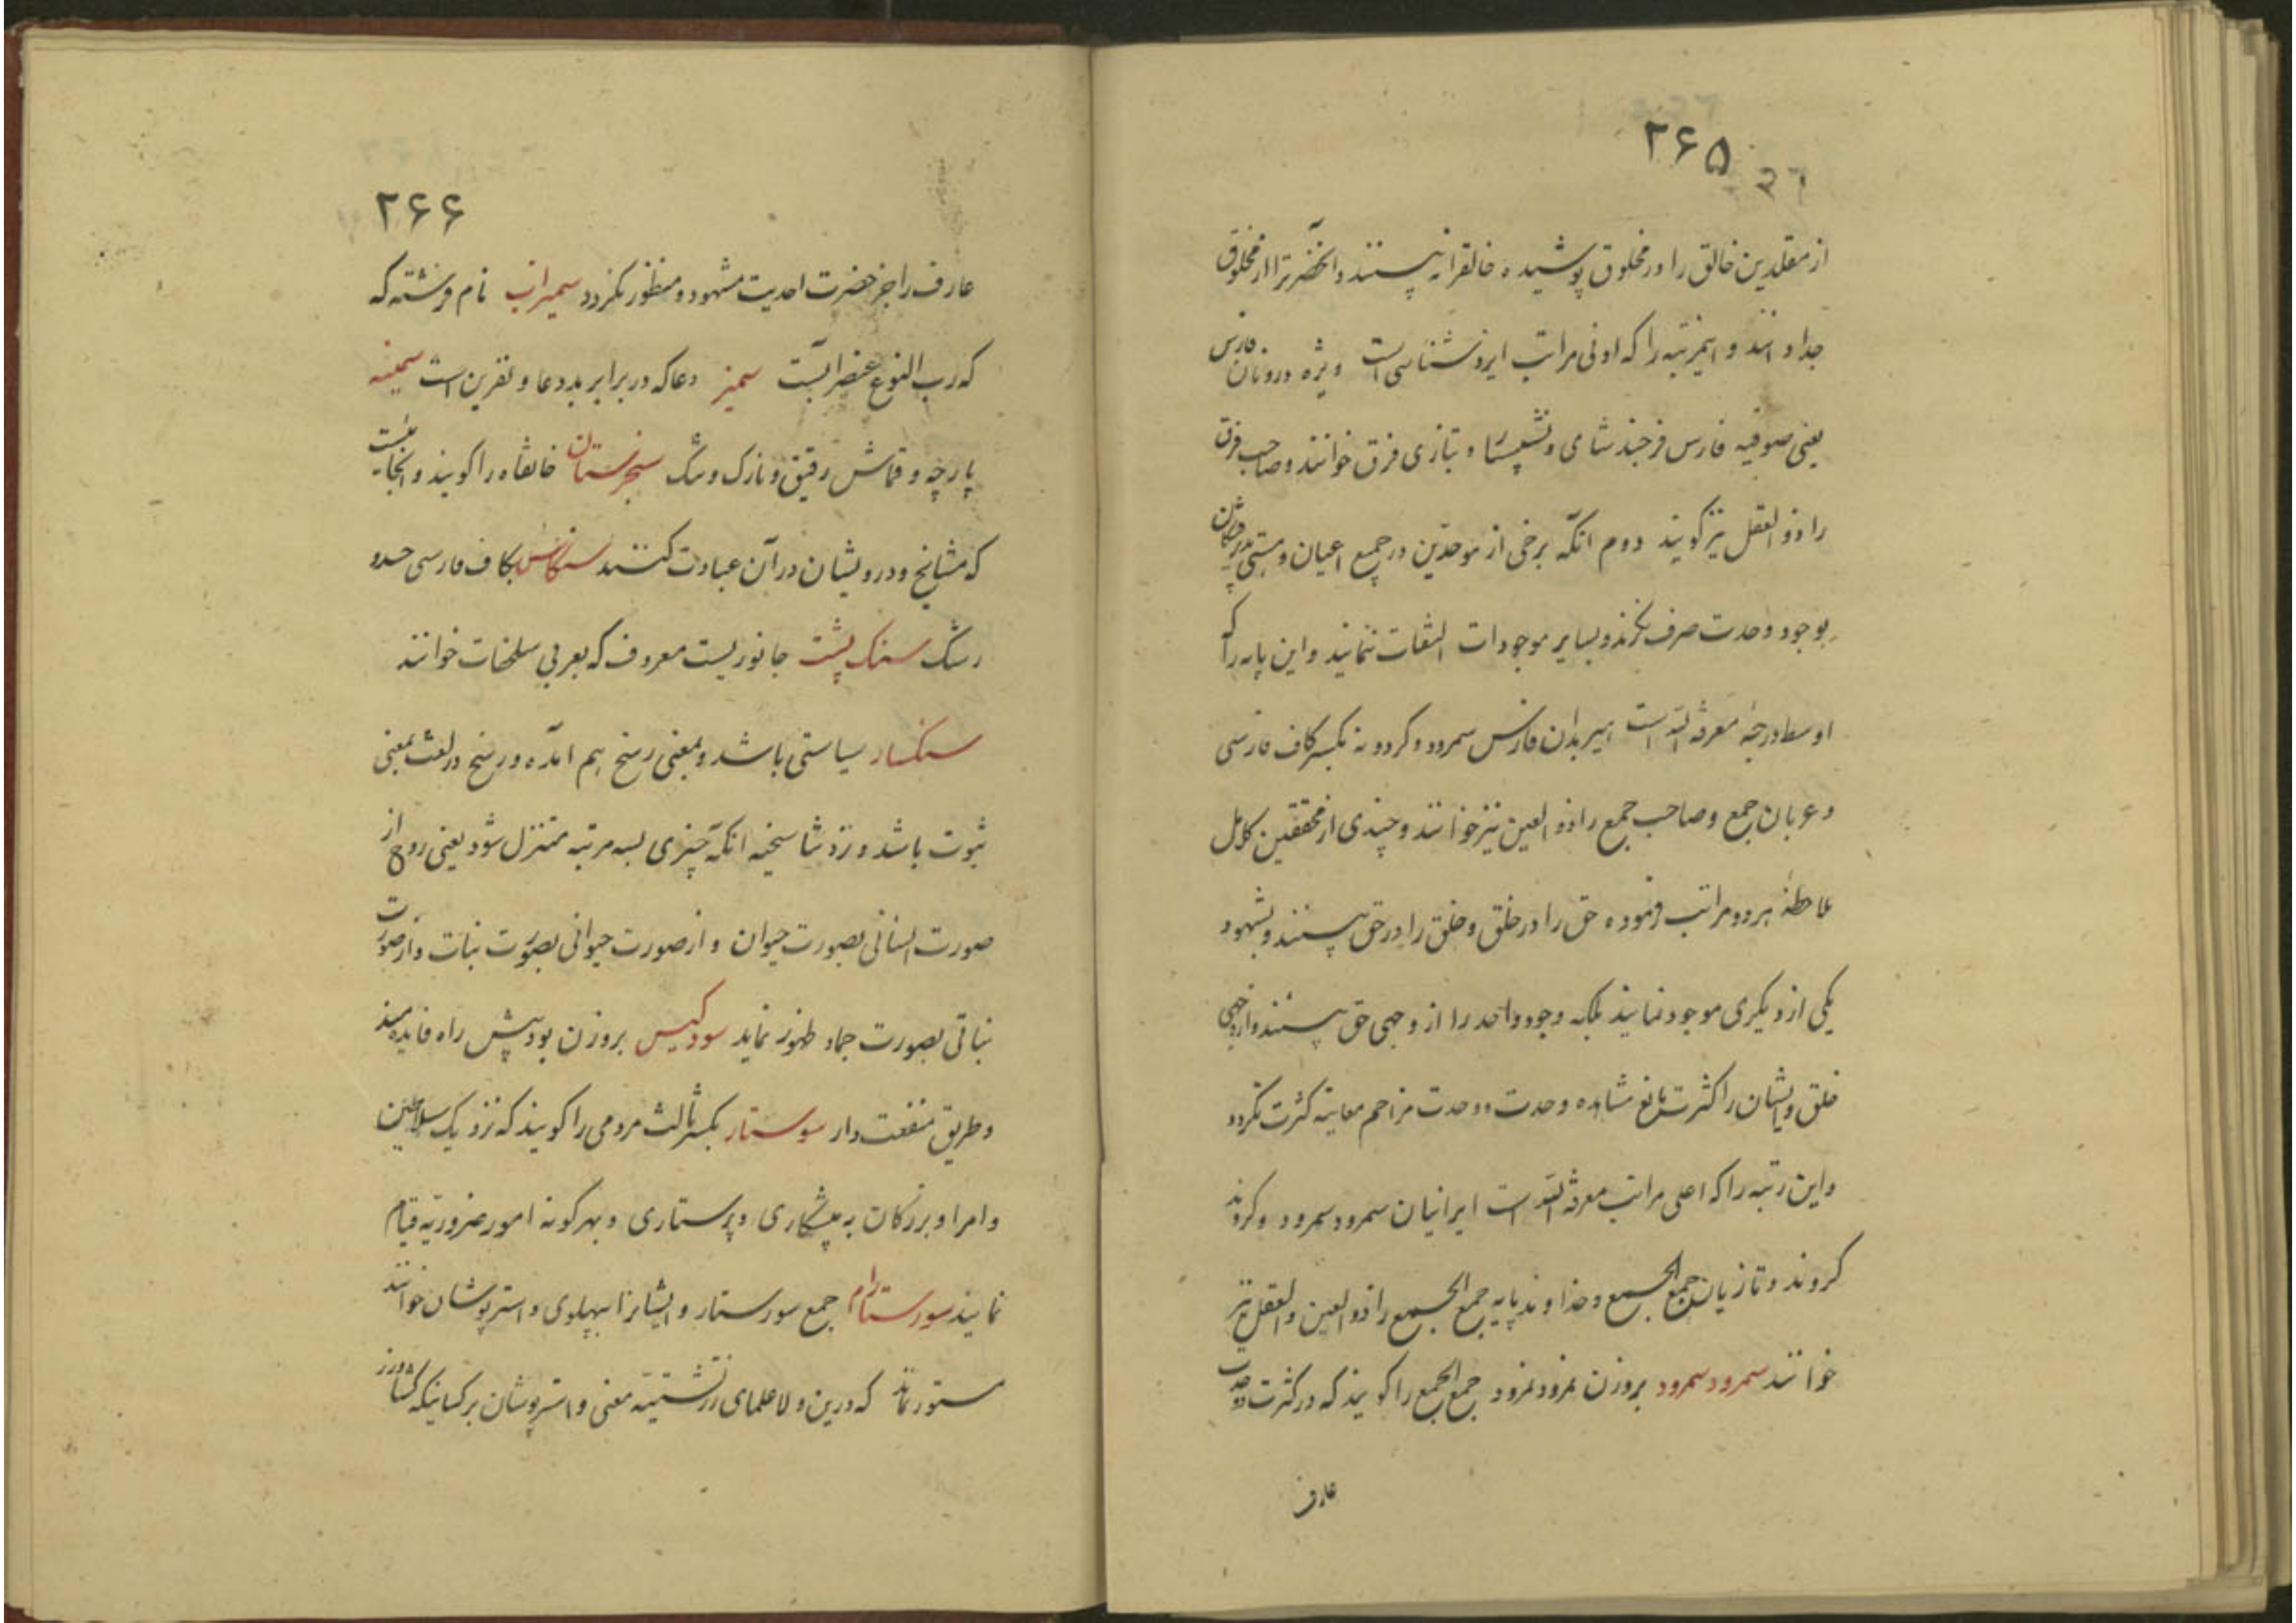 ۲۶۵
۳۶
از مقلدین خالق را در مخلوق پوشیده خالقرا نه بینند و آنحضرترا از مخلوق
جدا دانند و اینمرتبه را که ادنی مراتب ایزد شناسی است ویژه درونان فارس
یعنی صوفیه فارس فرجند شای و بتازی فرق خوانند و صاحب فرق
را ذو العقل نیز گویند دوم آنکه برخی از موحدین در جمیع اعیان و هستی پذیرفتگان
بوجود وحدت صرف نگرند و بسایر موجودات التفات ننمایند و این پایه را که
اوسط درجهٔ معرفة الله است هیربدان فارس سمرود و گردونه بکسر کاف فارسی
و عربان جمع و صاحب جمع را ذو العین نیز خوانند و چندی از محققین کامل
احاطهٔ هر دو مراتب فرموده حق را در خلق و خلق را در حق بینند و بشهود
یکی از دیگری موجود نمانند بلکه وجود واحد را از وجهی حق بینند و از وجهی
خلق و ایشان را کثرت مانع مشاهده وحدت و وحدت مزاحم معاینه کثرت نگردد
و این رتبه را که اعلی مراتب معرفة الله است ایرانیان سمرود سمرود و گروند
گروند و تازیان جمع الجمع و خداوند پایه جمع الجمع را ذو العین و العقل نیز
خوانند سمرود سمرود بروزن نمرود نمرود جمع الجمع را گویند که در کثرت و وحدت
عارف
۲۶۶
عارف را جز حضرت احدیت مشهود و منظور نگردد سمیراب نام فرشته که
که رب النوع عنصر آبست سمیز دعا که در برابر بد دعا و نفرین است سمینه
پارچه و قماش رقیق و نازک و سنجرستان خانقاه را گویند و آنجائیست
که مشایخ و درویشان در آن عبادت کنند سنگاس بکاف فارسی حسد و
رشک سنک پشت جانوریست معروف که بعربی سلحفات خوانند
سنکسار سیاستی باشد و بمعنی رسخ هم آمده و رسخ در لغت بمعنی
ثبوت باشد و نزد تناسخیه آنکه چیزی بسه مرتبه متنزل شود یعنی روح از
صورت انسانی بصورت حیوان و از صورت حیوانی بصورت نبات و از صورت
نباتی بصورت جماد ظهور نماید سودکیس بروزن بود پیش راه فایده مند
و طریق منفعت دار سورستار بکسر ثالث مردمی را گویند که نزدیک سلاطین
و امرا و بزرگان به پیشکاری و پرستاری و بهرگونه امور ضروریه قیام
نمایند سورستارام جمع سورستار و ایشانرا بپهلوی و استرپوشان خوانند
مستور نماند که درین ولا علمای زرتشتیه معنی واسترپوشان بر کسانیکه کشاورز